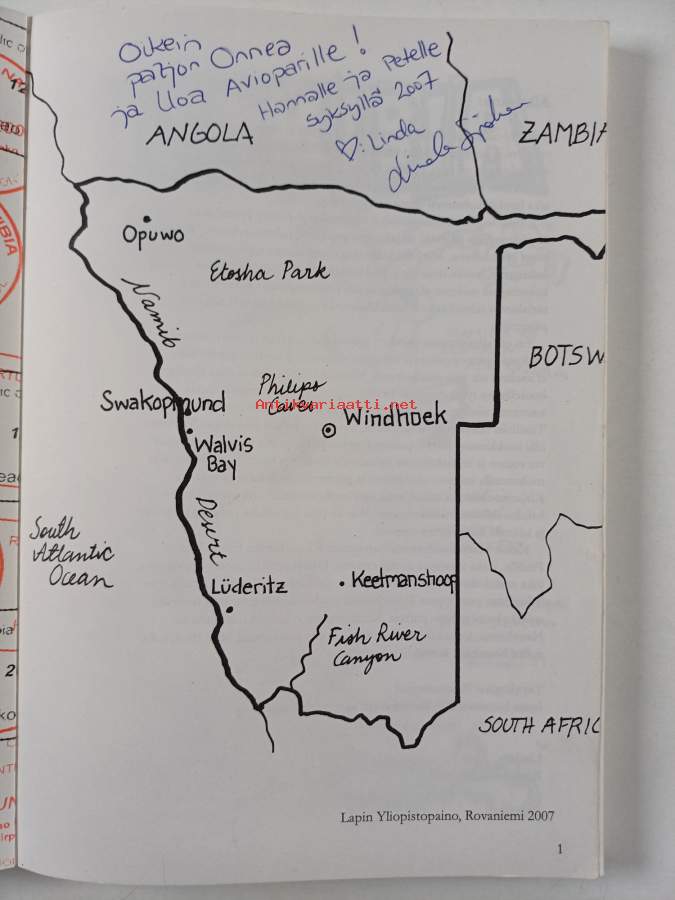 Oikein
paljon Onnea
ja Iloa Avioparille!
Hannalle ja Petelle
syksyllä 2007
♡: Linda
Linda
ANGOLA
ZAMBIA
Opuwo
Etosha Park
Namib
BOTSW
Philips
Caves
Swakopmund
Antikvariaatti.net
Windhoek
Walvis
Bay
Desert
South
Atlantic
Ocean
Lüderitz
Keetmanshoop
Fish River
Canyon
SOUTH AFRIC
Lapin Yliopistopaino, Rovaniemi 2007
1